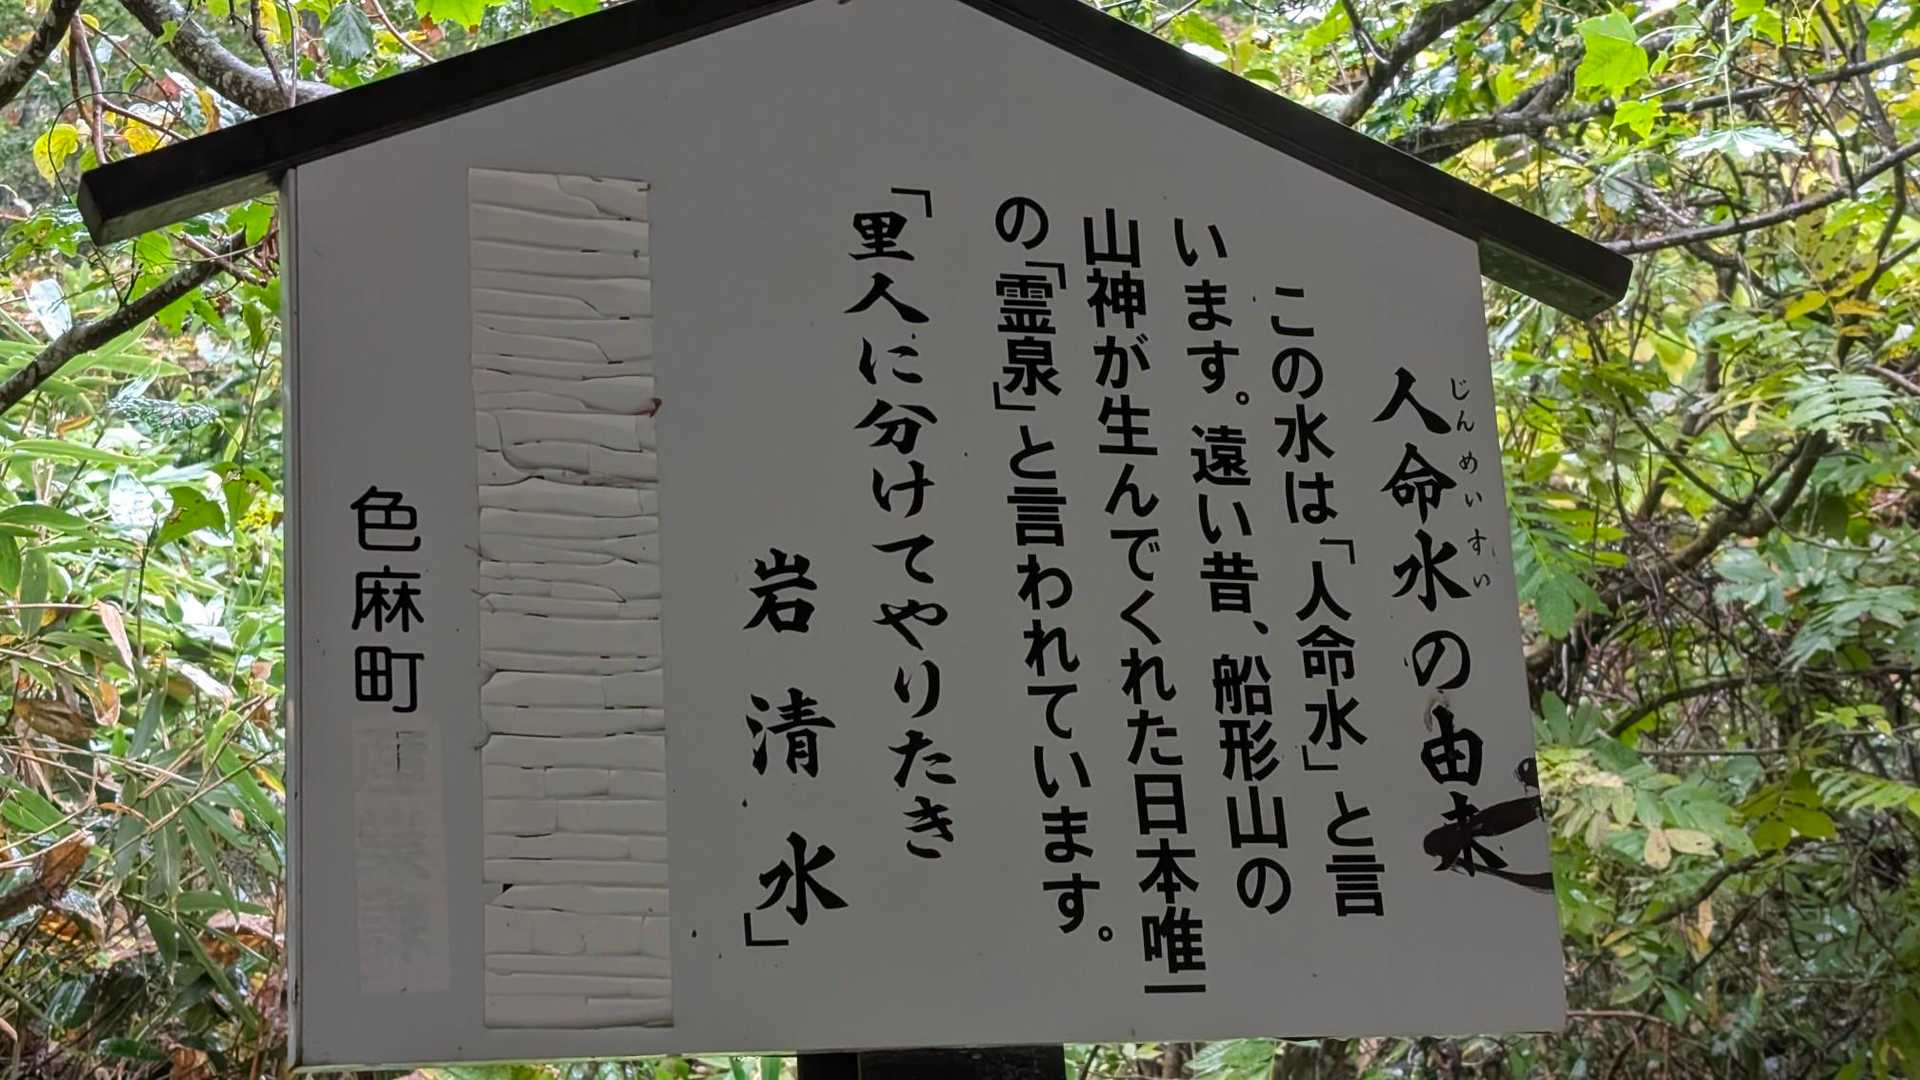 人命水の由来
じんめいすい
この水は「人命水」と言
います。遠い昔、船形山の
山神が生んでくれた日本唯一
の「霊泉」と言われています。
「里人に分けてやりたき
岩清水」
色麻町